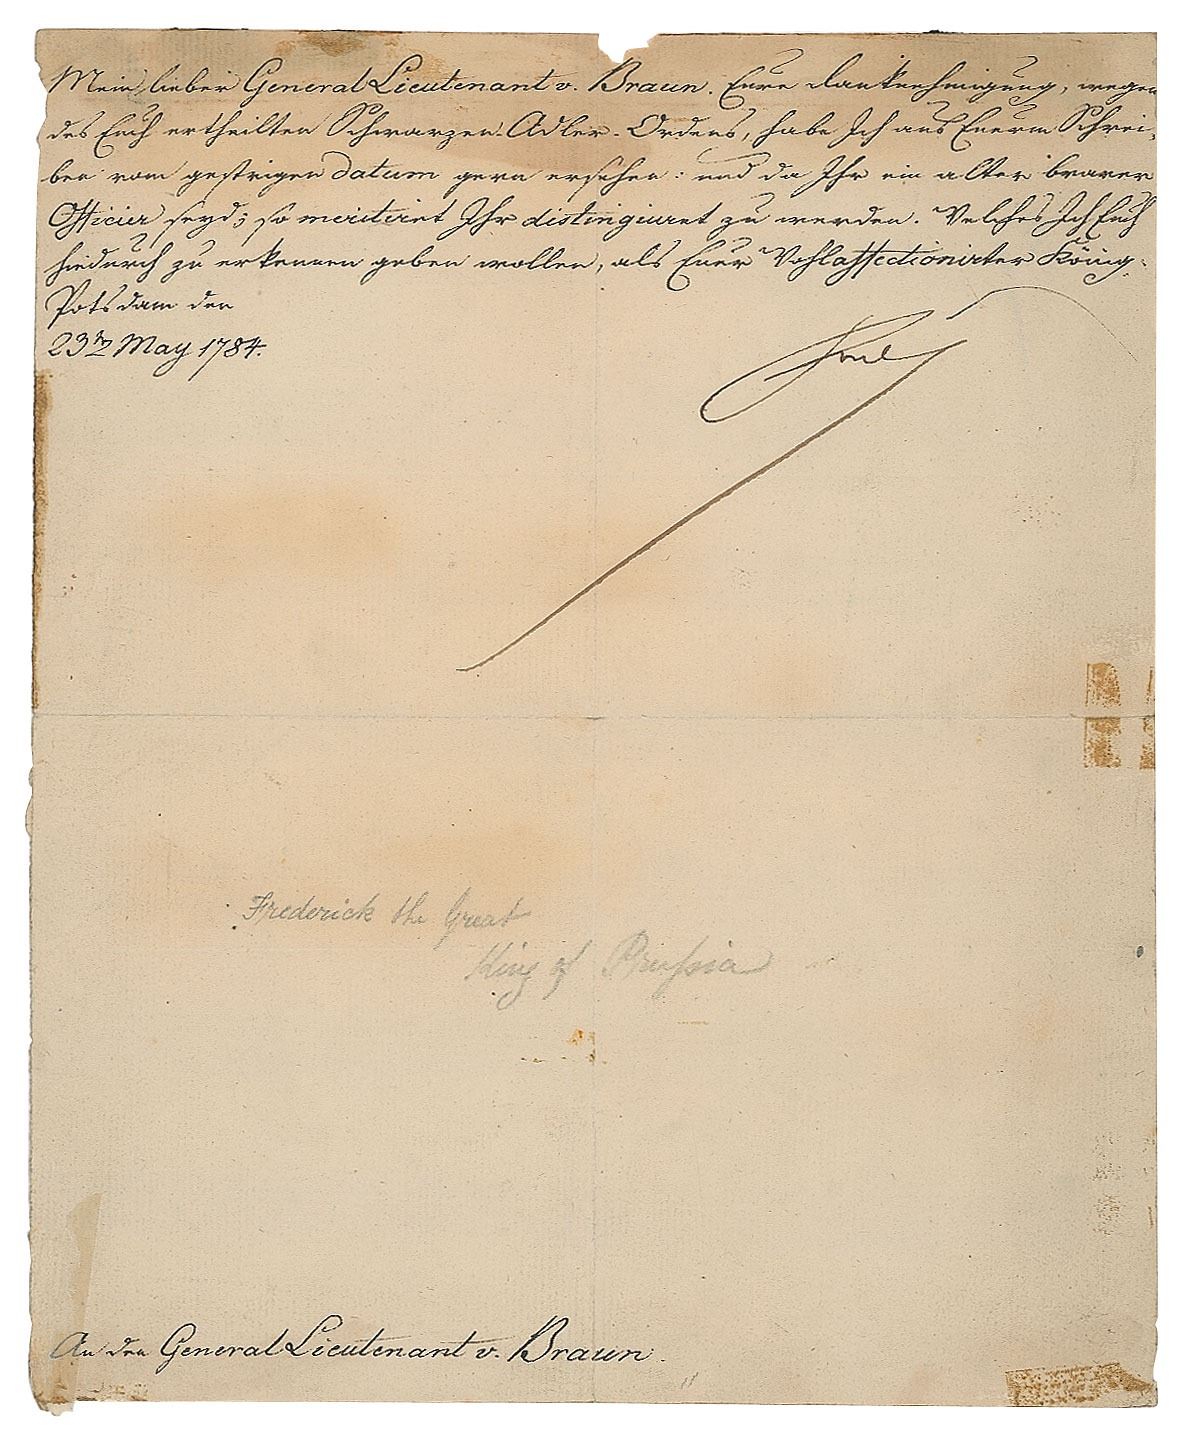 Mein lieber General Lieutenant v. Braun. Eure Danknehmigung, wegen
des Euch ertheilten Schwarzen-Adler-Ordens, habe Ich aus Euerm Schrei-
ben vom gestrigen datum gern ersehen: und da Ihr ein alter braver
Officier seyd; so meritiret Ihr distinguiret zu werden. Welches Ich Euch
hiedurch zu erkennen geben wollen, als Euer Wohlaffectionirter König.
Potsdam den
23ten May 1784.
Frederick the Great
King of Prussia
An den General Lieutenant v. Braun.